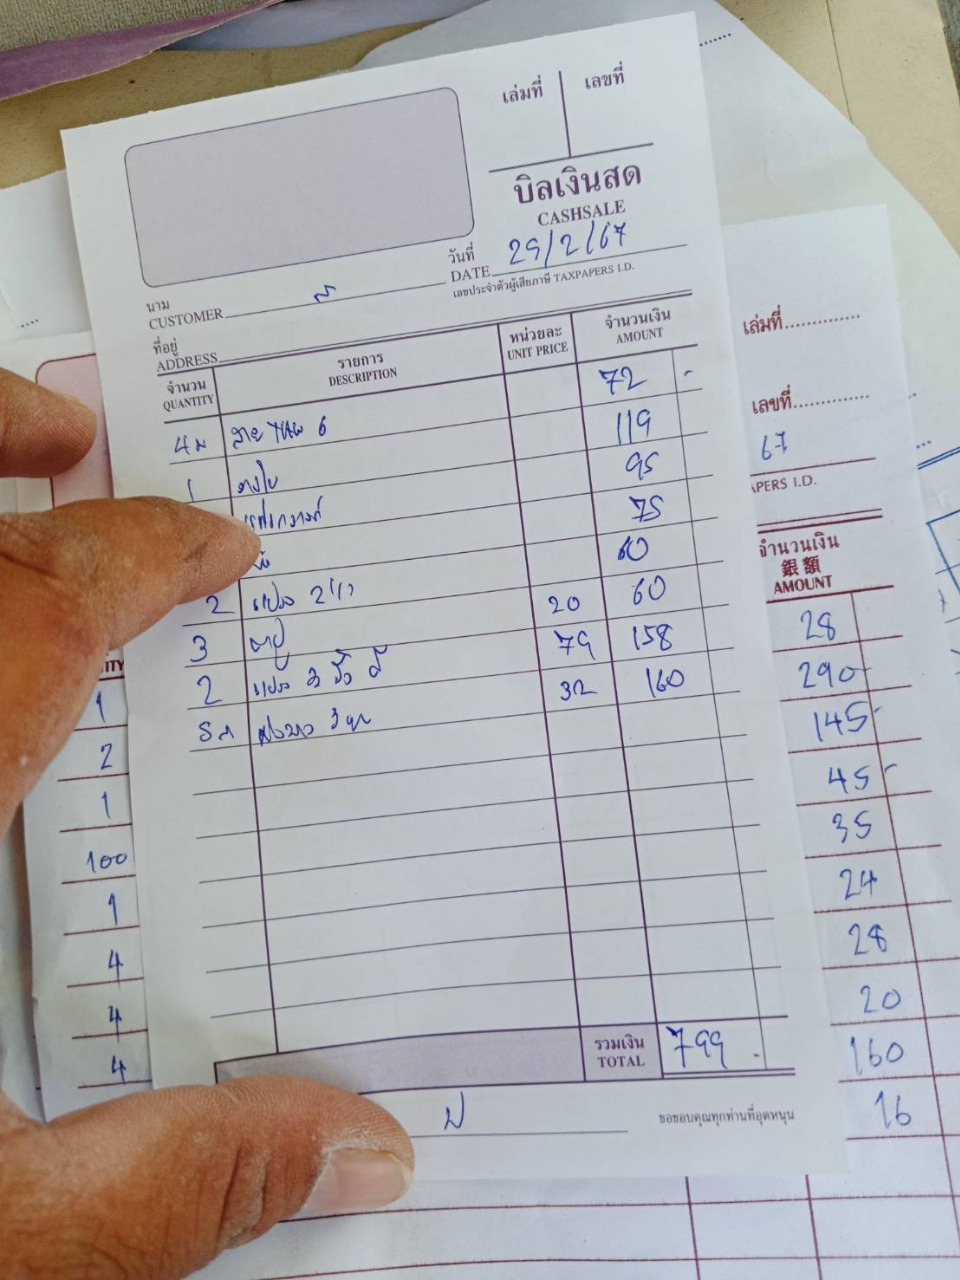 เล่มที่ เลขที่
บิลเงินสด
CASHSALE
วันที่
DATE 29/2/67
เลขประจำตัวผู้เสียภาษี TAXPAPERS I.D.
นาม
CUSTOMER
ที่อยู่
ADDRESS
จำนวน
QUANTITY
รายการ
DESCRIPTION
หน่วยละ
UNIT PRICE
จำนวนเงิน
AMOUNT
72 -
4ม สาย 6
119
1
95
75
60
2 แปรง 2นิ้ว
20 60
3 ตาปู
79 158
2 แปรง 3 นิ้ว
32 160
5
รวมเงิน
TOTAL
799 -
ขอขอบคุณทุกท่านที่อุดหนุน
เล่มที่
เลขที่
67
APERS I.D.
จำนวนเงิน
銀額
AMOUNT
28
290 -
145 -
45 -
35
24
28
20
160
16
ITY
1
2
1
100
1
4
4
4